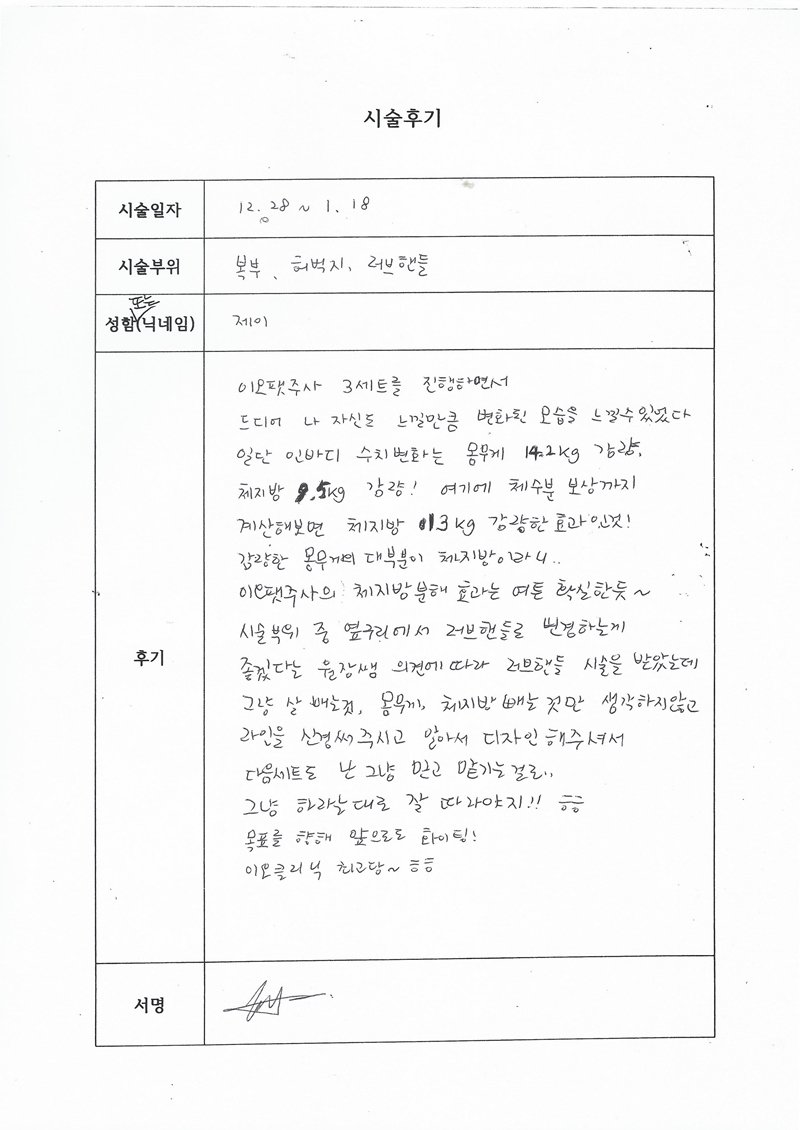 시술후기
시술일자 12. 28 ~ 1. 18
시술부위 복부, 허벅지, 러브핸들
또는
성함(닉네임) 제이
이오팻주사 3세트를 진행하면서
드디어 나 자신도 느낄만큼 변화된 모습을 느낄수있었다
일단 인바디 수치변화는 몸무게 14.2kg 감량,
체지방 9.5kg 감량! 여기에 체수분 보상까지
계산해보면 체지방 13kg 감량한 효과인것!
감량한 몸무게의 대부분이 체지방이라니..
이오팻주사의 체지방분해 효과는 여튼 확실한듯~
시술부위 중 옆구리에서 러브핸들로 변경하는게
좋겠다는 원장쌤 의견에따라 러브핸들 시술을 받았는데
후기
그냥 살 빼는것, 몸무게, 체지방 빼는 것만 생각하지않고
라인을 신경써주시고 알아서 디자인 해주셔서
다음세트도 난 그냥 믿고 맡기는걸로..
그냥 하라는대로 잘 따라야지!! ㅎㅎ
목표를 향해 앞으로도 화이팅!
이오클리닉 최고당~ ㅎㅎ
서명